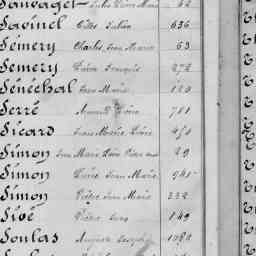 Sauvaget Jules Pierre Marie 62
Savinel Gilles Julien 636
Semery Charles Jean Marie 63
Semery Pierre François 272
Sénéchal Jean Marie 120
Serré Armand Pierre 701
Sicard Louis Marie Pierre 470
Simon Jean Marie 29
Simon Pierre Jean Marie 945
Simon Victor Jean Marie 332
Sivé 149
Soulas Auguste Joseph 1080